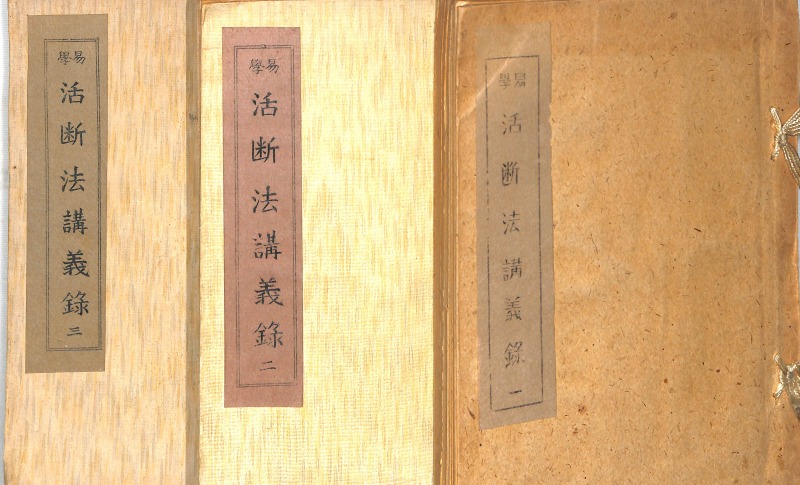 易學
活断法講義錄
一
易學
活断法講義錄
二
易學
活断法講義錄
三